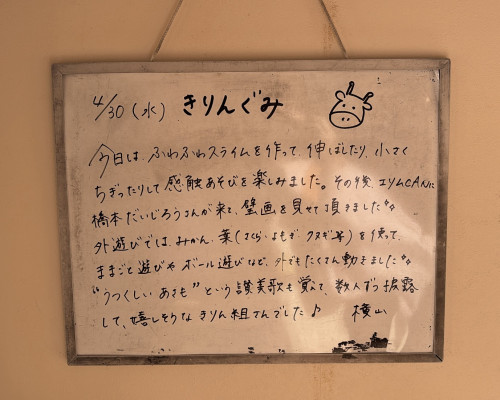 4/30（水） きりんぐみ
今日は、ふわふわスライムを作って、伸ばしたり、小さく
ちぎったりして感触あそびを楽しみました。その後、エリムCANに
橋本だいじろうさんが来て、壁画を見せて頂きました♪
外遊びでは、みかん、葉（さくら・よもぎ クヌギ等）を使って、
ままごと遊びやボール遊びなど、外でもたくさん動きました♪
"うつくしい あさも" という讃美歌も覚えて、数人ずつ披露
して、嬉しそうな きりん組さんでした♪ 横山